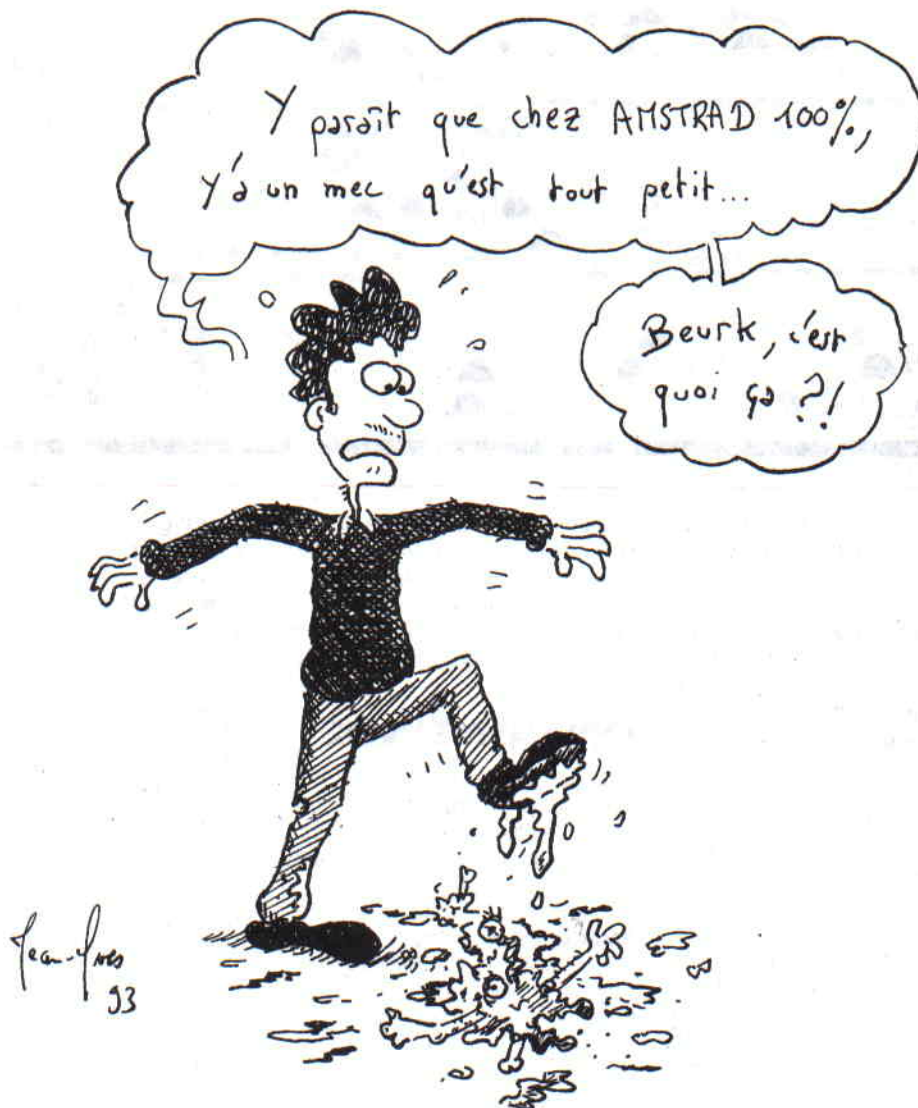 Y paraît que chez AMSTRAD 100%,
y'a un mec qu'est tout petit...
Beurk, c'est
quoi ça ?!
Jean-Yves
93